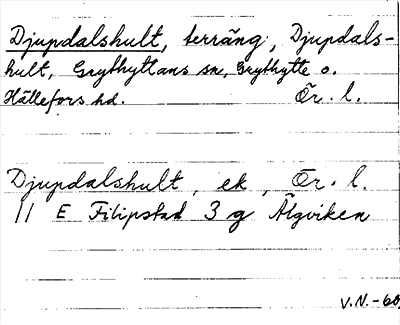 Djupdalshult, terräng, Djupdals-
hult, Grythyttans sn, Grythytte o.
Hällefors hd. Ör. l.
Djupdalshult, ek, Ör. l.
11 E Filipstad 3 g Älgviken
V.N.-60